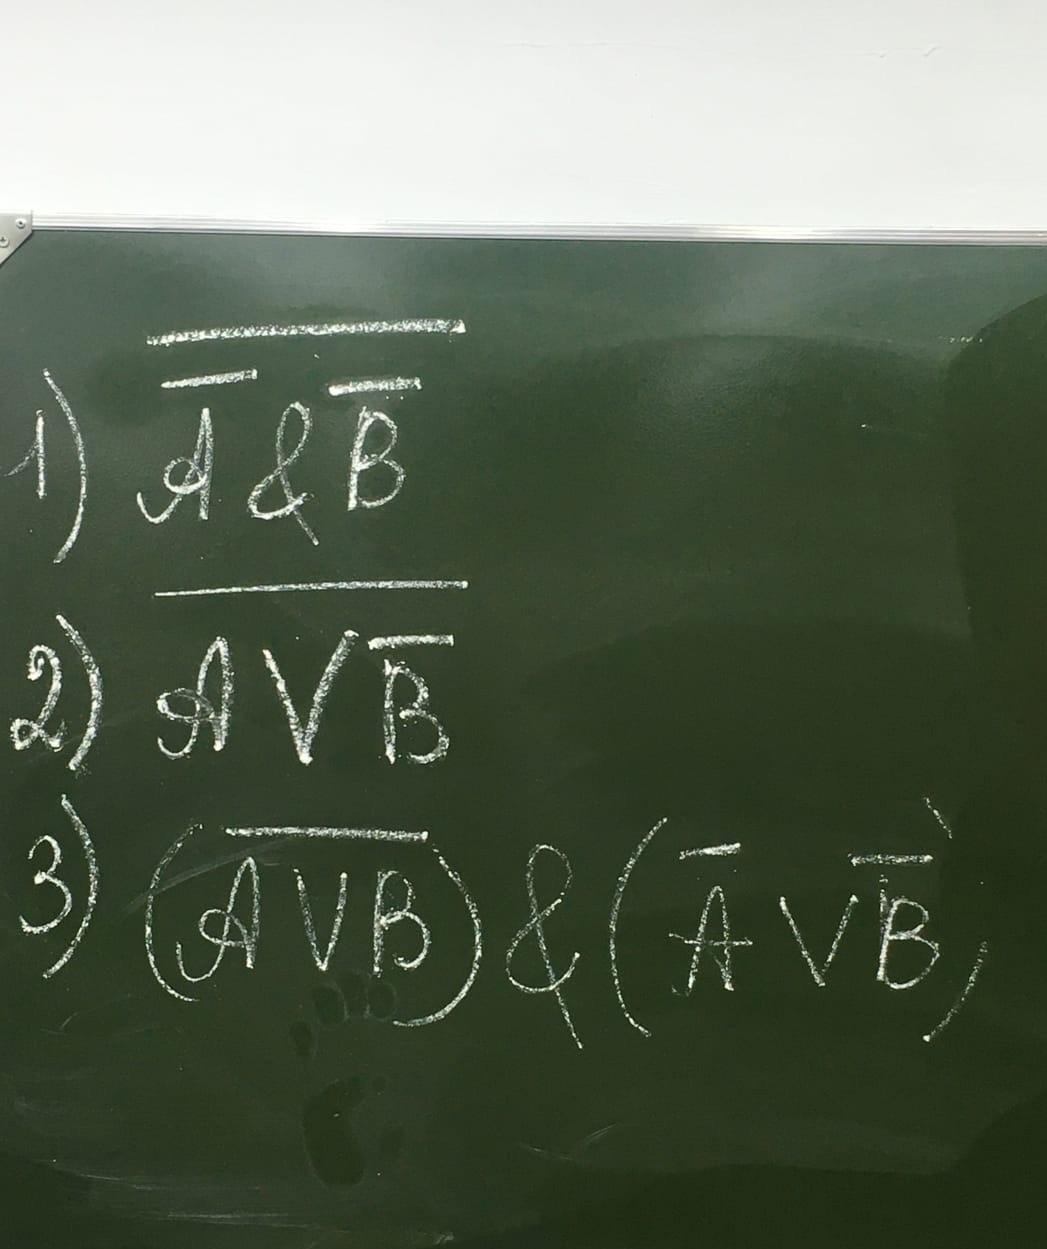 1) $\overline{\overline{A} \& \overline{B}}$
2) $\overline{A \vee \overline{B}}$
3) $(\overline{A \vee B}) \& (\overline{A} \vee \overline{B})$